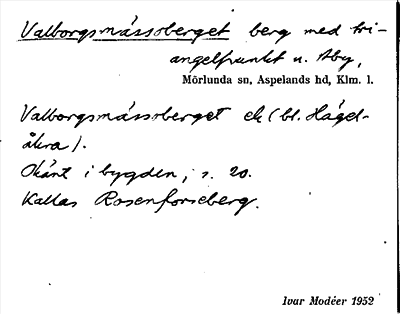 Valborgsmässoberget berg med tri-
angelpunkt n. Åby,
Mörlunda sn, Aspelands hd, Klm. l.
Valborgsmässoberget ek (bl. Hagel-
åkra).
Okänt i bygden, s. 20.
Kallas Rosenforseberg.
Ivar Modéer 1952